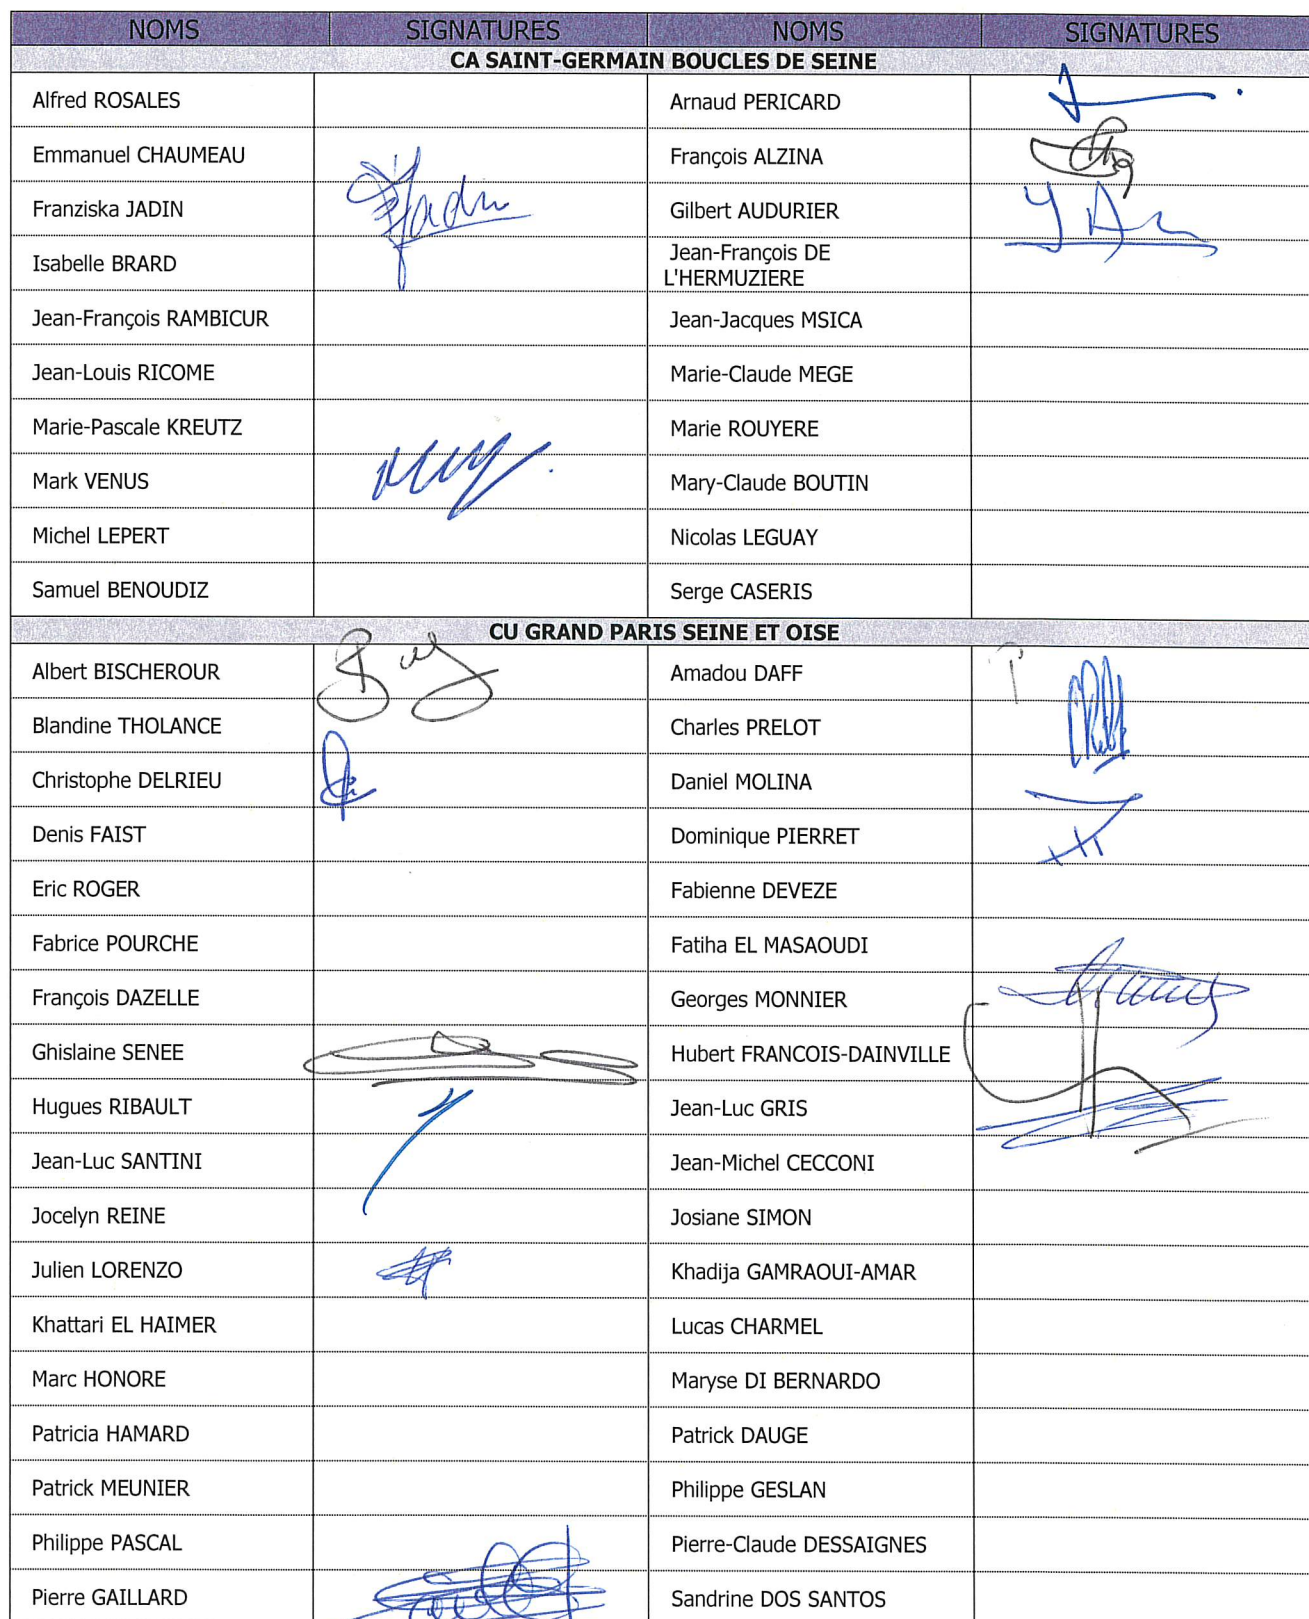 NOMS SIGNATURES NOMS SIGNATURES
CA SAINT-GERMAIN BOUCLES DE SEINE
Alfred ROSALES Arnaud PERICARD
Emmanuel CHAUMEAU François ALZINA
Franziska JADIN Jadin Gilbert AUDURIER
Isabelle BRARD Jean-François DE
L'HERMUZIERE
Jean-François RAMBICUR Jean-Jacques MSICA
Jean-Louis RICOME Marie-Claude MEGE
Marie-Pascale KREUTZ Marie ROUYERE
Mark VENUS Mary-Claude BOUTIN
Michel LEPERT Nicolas LEGUAY
Samuel BENOUDIZ Serge CASERIS
CU GRAND PARIS SEINE ET OISE
Albert BISCHEROUR Amadou DAFF
Blandine THOLANCE Charles PRELOT
Christophe DELRIEU Daniel MOLINA
Denis FAIST Dominique PIERRET
Eric ROGER Fabienne DEVEZE
Fabrice POURCHE Fatiha EL MASAOUDI
François DAZELLE Georges MONNIER
Ghislaine SENEE Hubert FRANCOIS-DAINVILLE
Hugues RIBAULT Jean-Luc GRIS
Jean-Luc SANTINI Jean-Michel CECCONI
Jocelyn REINE Josiane SIMON
Julien LORENZO Khadija GAMRAOUI-AMAR
Khattari EL HAIMER Lucas CHARMEL
Marc HONORE Maryse DI BERNARDO
Patricia HAMARD Patrick DAUGE
Patrick MEUNIER Philippe GESLAN
Philippe PASCAL Pierre-Claude DESSAIGNES
Pierre GAILLARD Sandrine DOS SANTOS